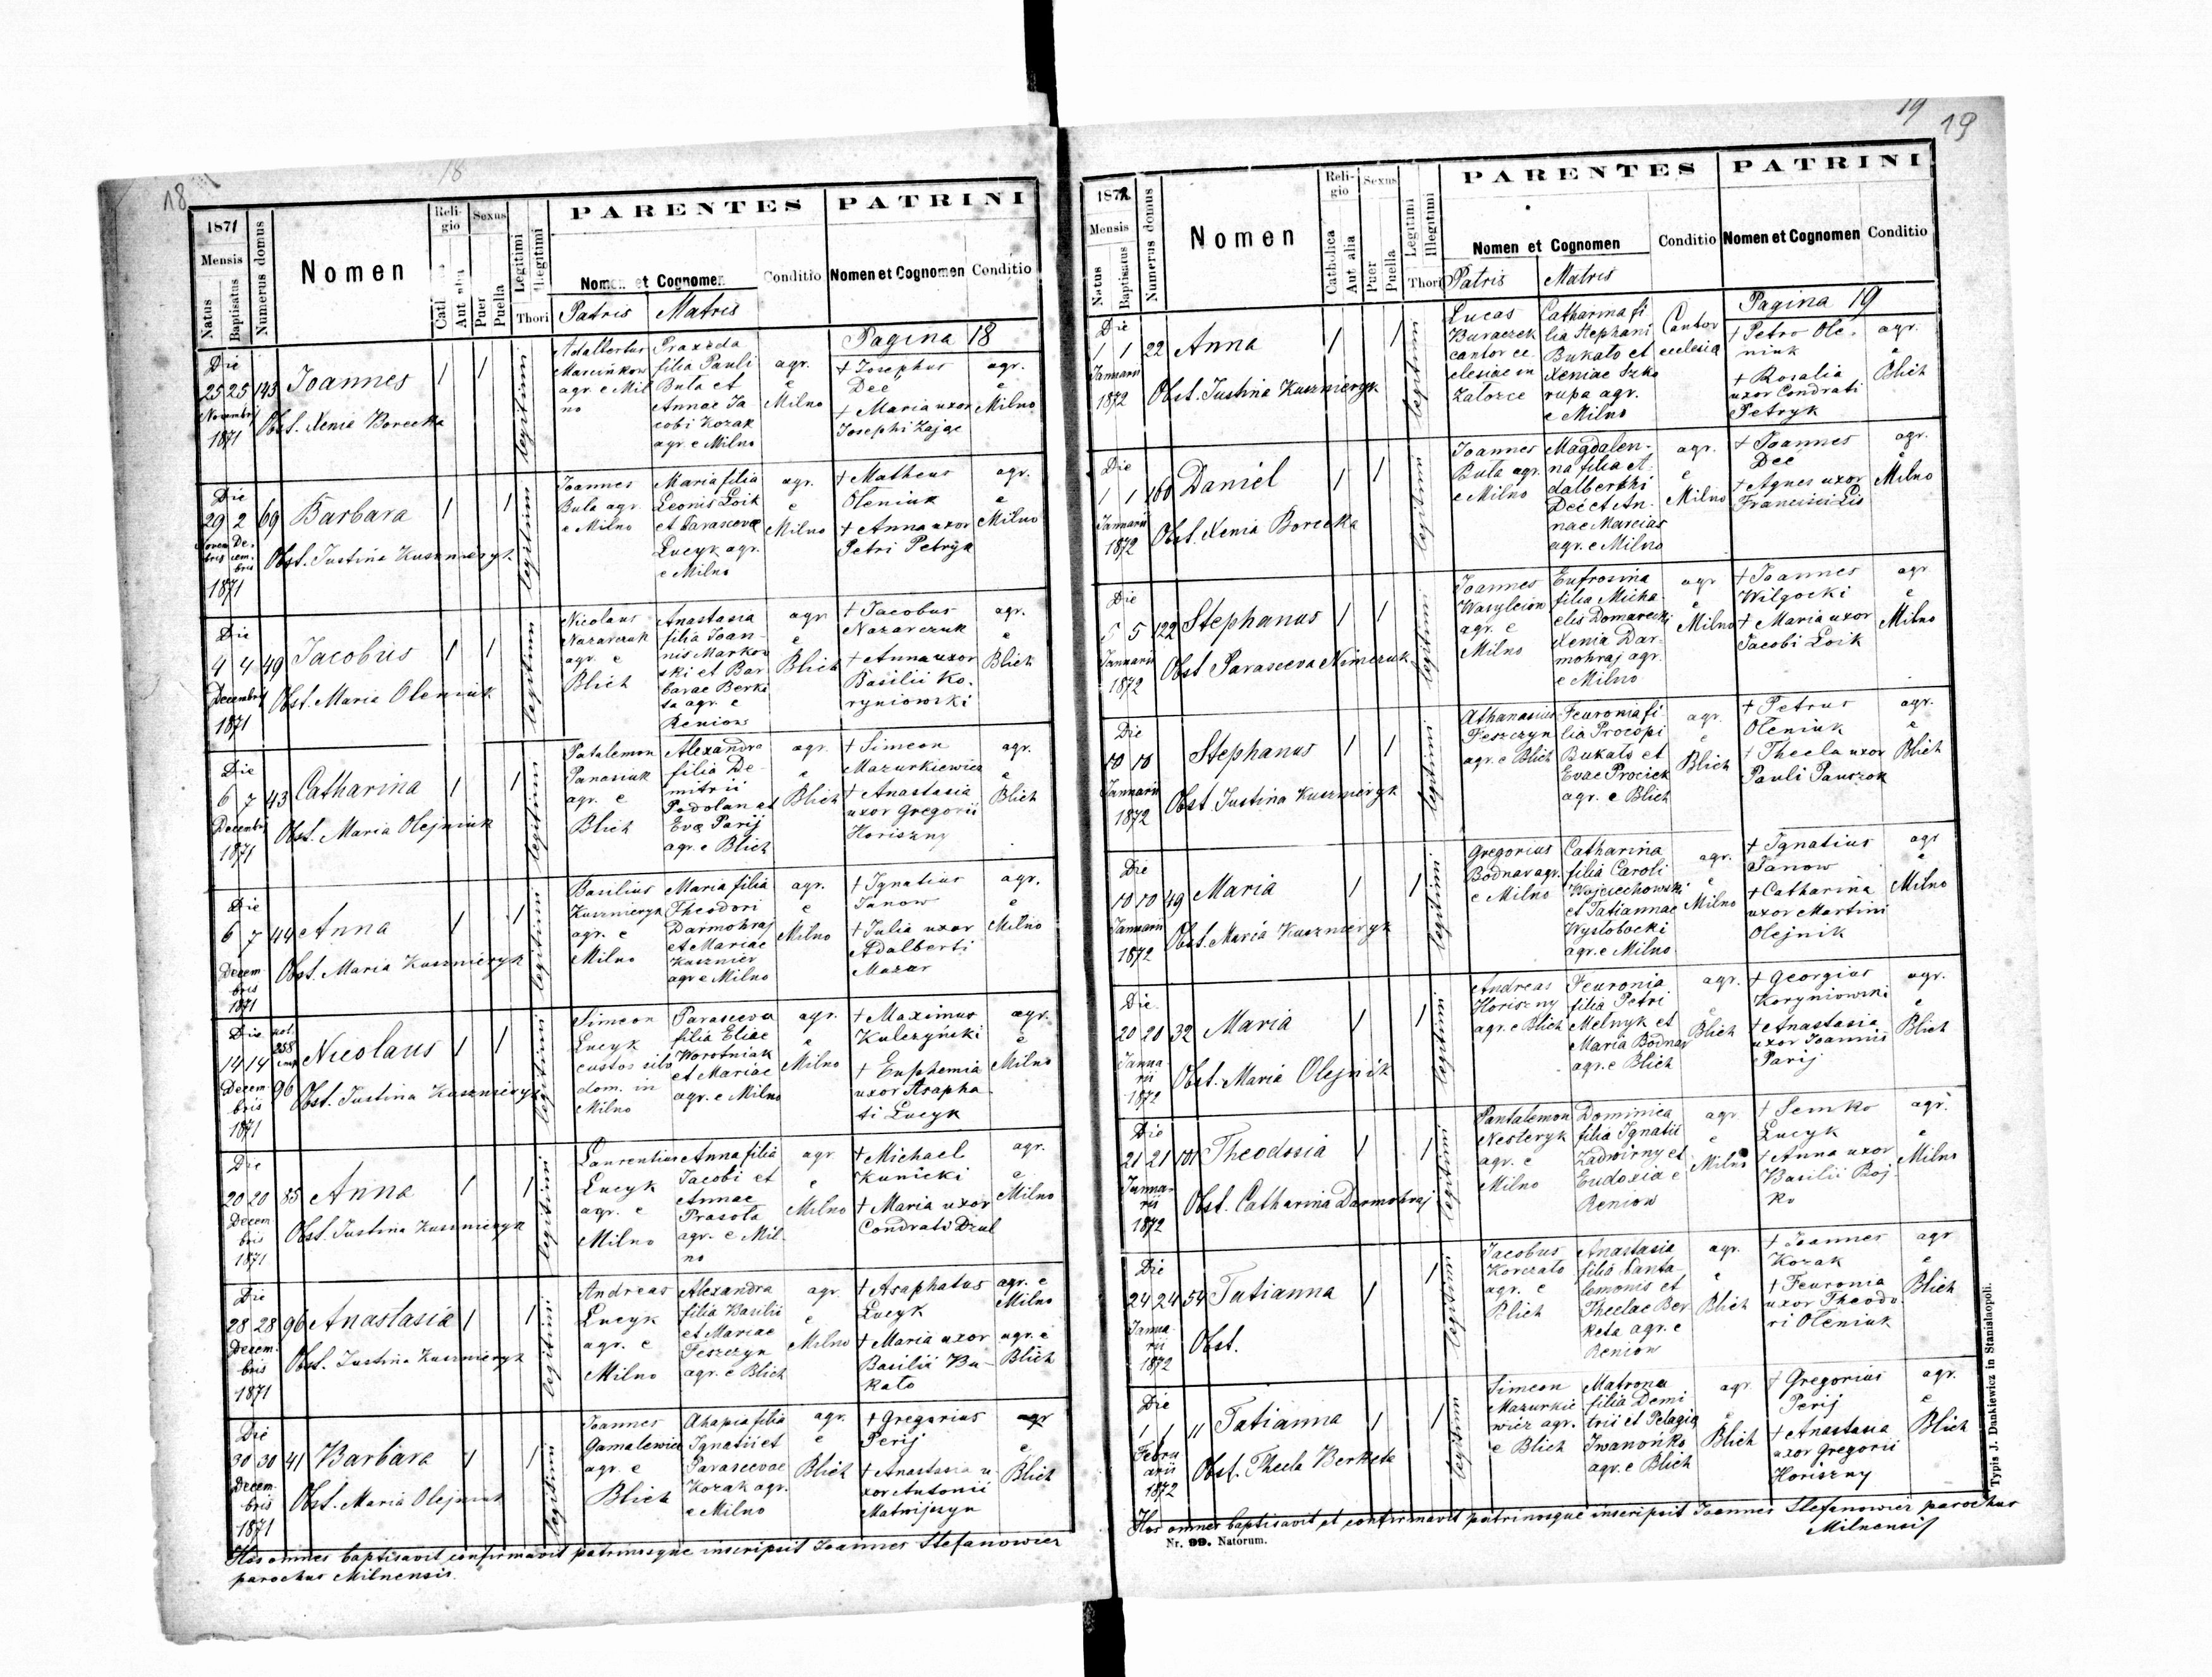 18
18
1871
Mensis
Natus
Baptisatus
Numerus domus
Nomen
Reli-
gio
Aut alia
Sexus
Puer
Puella
Legitimi
Illegitimi
Thori
PARENTES
Nomen et Cognomen
Patris Matris
Conditio
PATRINI
Nomen et Cognomen
Conditio
Pagina 18
Die
25 25 143 Joannes 1 1
Novembris
1871
Obst. Xenia Borecka
legitimi
Adalbertus
Marcinkow
agr. e Mil
no
Praxeda
filia Pauli
Buta et
Annae Ja
cobi Kozak
agr. e Milno
agr.
e
Milno
† Josephus
Deć
† Maria uxor
Josephi Zając
agr.
e
Milno
Die
29 2 69 Barbara 1 1
Novem
bris
De
cem
bris
1871
Obst. Justina Kuszmieryk
legitimi
Joannes
Buta agr.
e Milno
Maria filia
Leonis Loik
et Parascevae
Lucyk agr.
e Milno
agr.
e
Milno
† Matheus
Oleniuk
† Anna uxor
Petri Petryk
agr.
e
Milno
Die
4 4 49 Jacobus 1 1
Decembris
1871
Obst. Maria Oleniuk
legitimi
Nicolaus
Nazarczuk
agr. e
Blich
Anastasia
filia Joan-
nis Markow
ski et Bar
barae Berke
ta agr. e
Reniow
agr
e
Blich
† Jacobus
Nazarczuk
† Anna uxor
Basilii Ko.
ryniowski
agr.
e
Blich
Die
6 7 43 Catharina 1 1
Decembris
1871
Obst. Maria Olejniuk
legitimi
Patalemon
Panasiuk
agr. e
Blich
Alexandra
filia De-
mitrii
Podolan et
Eva Parij
agr. e Blich
agr.
e
Blich
† Simeon
Mazurkiewicz
† Anastasia
uxor Gregorii
Horiszny
agr.
e
Blich
Die
6 7 44 Anna 1 1
Decem
bris
1871
Obst. Maria Kuszmieryk
legitimi
Basilius
Kuszmieryk
agr. e
Milno
Maria filia
Theodori
Darmohraj
et Mariae
Kuszmier
agr e Milno
agr.
e
Milno
† Ignatius
Janow
† Julia uxor
Adalberti
Mazur
agr.
e
Milno
Die
14 14 258 96 Nicolaus 1 1
Decem
bris
1871
Obst. Justina Kuszmieryk
legitimi
Simeon
Lucyk
custos silv
dom. in
Milno
Parasceva
filia Eliae
Worotniak
et Mariae
agr. e Milno
agr.
e
Milno
† Maximus
Kulczyński
† Euphemia
uxor Asapha
ti Lucyk
agr.
e
Milno
Die
20 20 55 Anna 1 1
Decem
bris
1871
Obst. Justina Kuszmieryk
legitimi
Laurentius
Lucyk
agr. e
Milno
Anna filia
Jacobi et
Annae
Prasota
agr. e Mil
no
agr
e
Milno
† Michael
Kunicki
† Maria uxor
Condrati Dzul
agr.
e
Milno
Die
28 28 96 Anastasia 1 1
Decem
bris
1871
Obst. Justina Kuszmieryk
legitimi
Andreas
Lucyk
agr. e
Milno
Alexandra
filia Basilii
et Mariae
Feszczyn
agr. e Blich
agr.
e
Milno
† Asaphatus
Lucyk
† Maria uxor
Basilii Bu-
kato
agr. e
Milno
agr. e
Blich
Die
30 30 41 Barbara 1 1
Decem
bris
1871
Obst. Maria Olejniuk
legitimi
Joannes
Gamalewicz
agr. e
Blich
Ahapia filia
Ignatii et
Parascevae
Kozak agr.
e Milno
agr.
e
Blich
† Gregorius
Perij
† Anastasia u
xor Antonii
Matwijszyn
agr
e
Blich
Hos omnes baptisavit confirmavit patrinosque inscripsit Joannes Stefanowicz
parochus Milnensis.
19
19
1872
Mensis
Natus
Baptisatus
Numerus domus
Nomen
Reli-
gio
Catholica
Aut alia
Sexus
Puer
Puella
Legitimi
Illegitimi
Thori
PARENTES
Nomen et Cognomen
Patris Matris
Conditio
PATRINI
Nomen et Cognomen
Conditio
Pagina 19
Die
1 1 22 Anna 1 1
Januarii
1872
Obst. Justina Kuszmieryk
legitimi
Lucas
Buraczek
cantor ec
clesiae in
Załozce
Catharina fi
lia Stephani
Bukato et
Xeniae Szka
rupa agr.
e Milno
Cantor
ecclesia
† Petro Ole.
niuk
† Rosalia
uxor Condrati
Petryk
agr.
e
Blich
Die
1 1 160 Daniel 1 1
Januarii
1872
Obst. Xenia Borecka
legitimi
Joannes
Buta agr.
e Milno
Magdalen-
na filia A
dalberthi
Deć et An-
nae Marciar
agr. e Milno
agr.
e
Milno
† Joannes
Deć
† Agnes uxor
Francisci Lis
agr.
e
Milno
Die
5 5 122 Stephanus 1 1
Januarii
1872
Obst Parasceva Nimczuk
legitimi
Joannes
Wasylciow
agr. e
Milno
Eufrosina
filia Micha
elis Domarecki
Xenia Dar-
mohraj agr.
e Milno
agr
e
Milno
† Joannes
Wilgocki
† Maria uxor
Jacobi Loik
agr
e
Milno
Die
10 10 Stephanus 1 1
Januarii
1872
Obst. Justina Kuszmieryk
legitimi
Athanasius
Feszczyn
agr. e Blich
Feuronia fi
lia Procopi
Bukato et
Evae Prociek
agr. e Blich
agr.
e
Blich
† Petrus
Oleniuk
† Thecla uxor
Pauli Panszok
agr.
e
Blich
Die
10 10 49 Maria 1 1
Januarii
1872
Obst. Maria Kuszmieryk
legitimi
Gregorius
Bodnar agr.
e Milno
Catharina
filia Caroli
Wojciechowski
et Tatiannae
Wystobocki
agr. e Milno
agr.
e
Milno
† Ignatius
Janow
† Catharina
uxor Martini
Olejnik
agr
e
Milno
Die
20 20 32 Maria 1 1
Janua
rii
1872
Obst. Maria Olejnik
legitimi
Andreas
Horiszny
agr. e Blich
Feuronia
filia Petri
Melnyk et
Maria Bodnar
agr. e Blich
agr.
e
Blich
† Georgius
Koryniowski
† Anastasia
uxor Joannis
Parij
agr.
e
Blich
Die
21 21 101 Theodosia 1 1
Janua-
rii
1872
Obst. Catharina Darmohraj
legitimi
Pantalemon
Nesteryk
agr. e
Milno
Dominica
filia Ignatii
Zadwirny et
Eudoxia e
Reniow
agr
e
Milno
† Semko
Lucyk
† Anna uxor
Basilii Boj
ko
agr.
e
Milno
Die
24 24 54 Tatianna 1 1
Janua
rii
1872
Obst.
legitimi
Jacobus
Korczato
agr. e
Blich
Anastasia
filia Panta-
lemonis et
Theclae Ber
keta agr. e
Reniow
agr.
e
Blich
† Joannes
Kozak
† Feuronia
uxor Theodo
ri Oleniuk
agr
e
Blich
Die
1 1 11 Tatianna 1 1
Febru
arii
1872
Obst. Thecla Berketa
legitimi
Simeon
Mazurkie
wicz agr.
e Blich
Matrona
filia Demi
trii et Pelagia
Iwanońko
agr. e Blich
agr.
e
Blich
† Gregorius
Perij
† Anastasia
uxor Gregorii
Horiszny
agr.
e
Blich
Hos omnes baptisavit et confirmavit patrinosque inscripsit Joannes Stefanowicz parochus
Milnensis
Nr. 99. Natorum.
Typis J. Dankiewicz in Stanislaopoli.